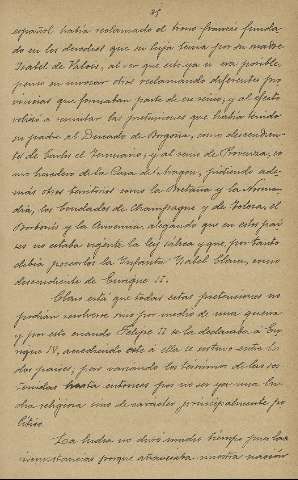 25
español había reclamado el trono francés funda-
do en los derechos que su hija tenía por su madre
Isabel de Valois, al ver que esto ya no era posible,
pensó en invocar otros reclamando diferentes pro
vincias que formaban parte de ese reino, y al efecto
volvió a resucitar las pretensiones que había tenido
su padre al Ducado de Borgoña, como descendien-
te de Carlos el Temerario, y al reino de Provenza, co
mo heredero de la Casa de Aragón, pidiendo ade-
más otros territorios como la Bretaña y la Norman-
día, los Condados de Champagne y de Tolosa, el
Borbonés y la Auvernia, alegando que en estos paí
ses no estaba vigente la ley sálica y que, por tanto
debía poseerlos la Infanta Isabel Clara, como
descendiente de Enrique II.
Claro está que todas estas pretensiones no
podían resolverse sino por medio de una guerra
y por esto cuando Felipe II se la declaraba a En
rique IV, accediendo éste a ella se sostuvo entre los
dos países, pero variando los términos de las sos
tenidas hasta entonces por no ser ya una lu-
cha religiosa sino de carácter principalmente po
lítico.
La lucha no duró mucho tiempo pues las
circunstancias porque atravesaba nuestra nación